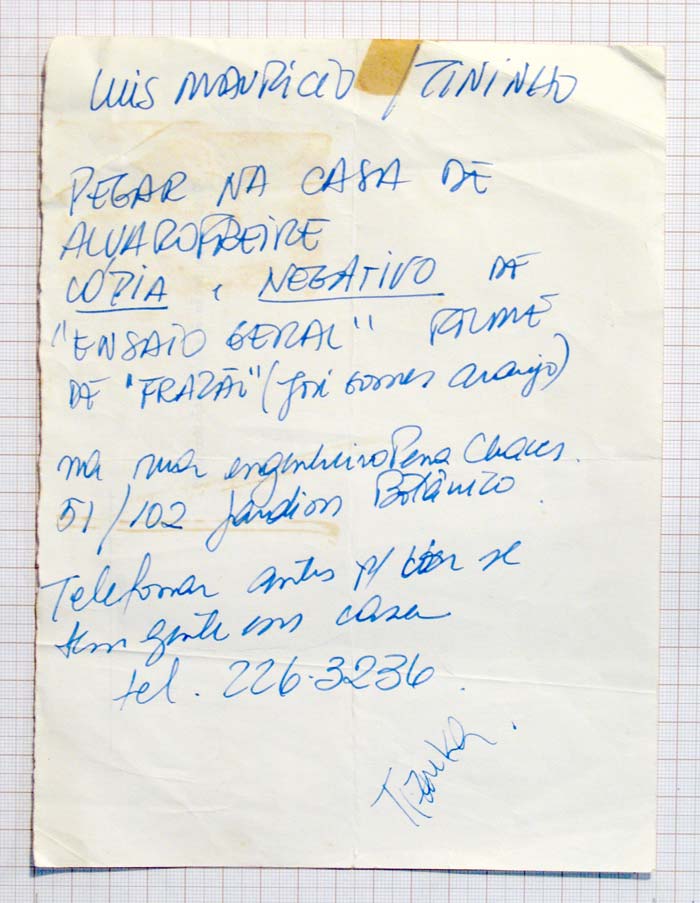 LUIS MAURICIO / TININHO
PEGAR NA CASA DE
ALVARO FREIRE
CÓPIA e NEGATIVO DE
"ENSAIO GERAL" FILME
DE "FRAZÃO" (José Gomes Araujo)
na rua engenheiro Pena Chaves.
51/102 Jardim Botânico.
Telefonar antes p/ ver se
tem gente em casa
tel. 226.3236.
Tizuka.